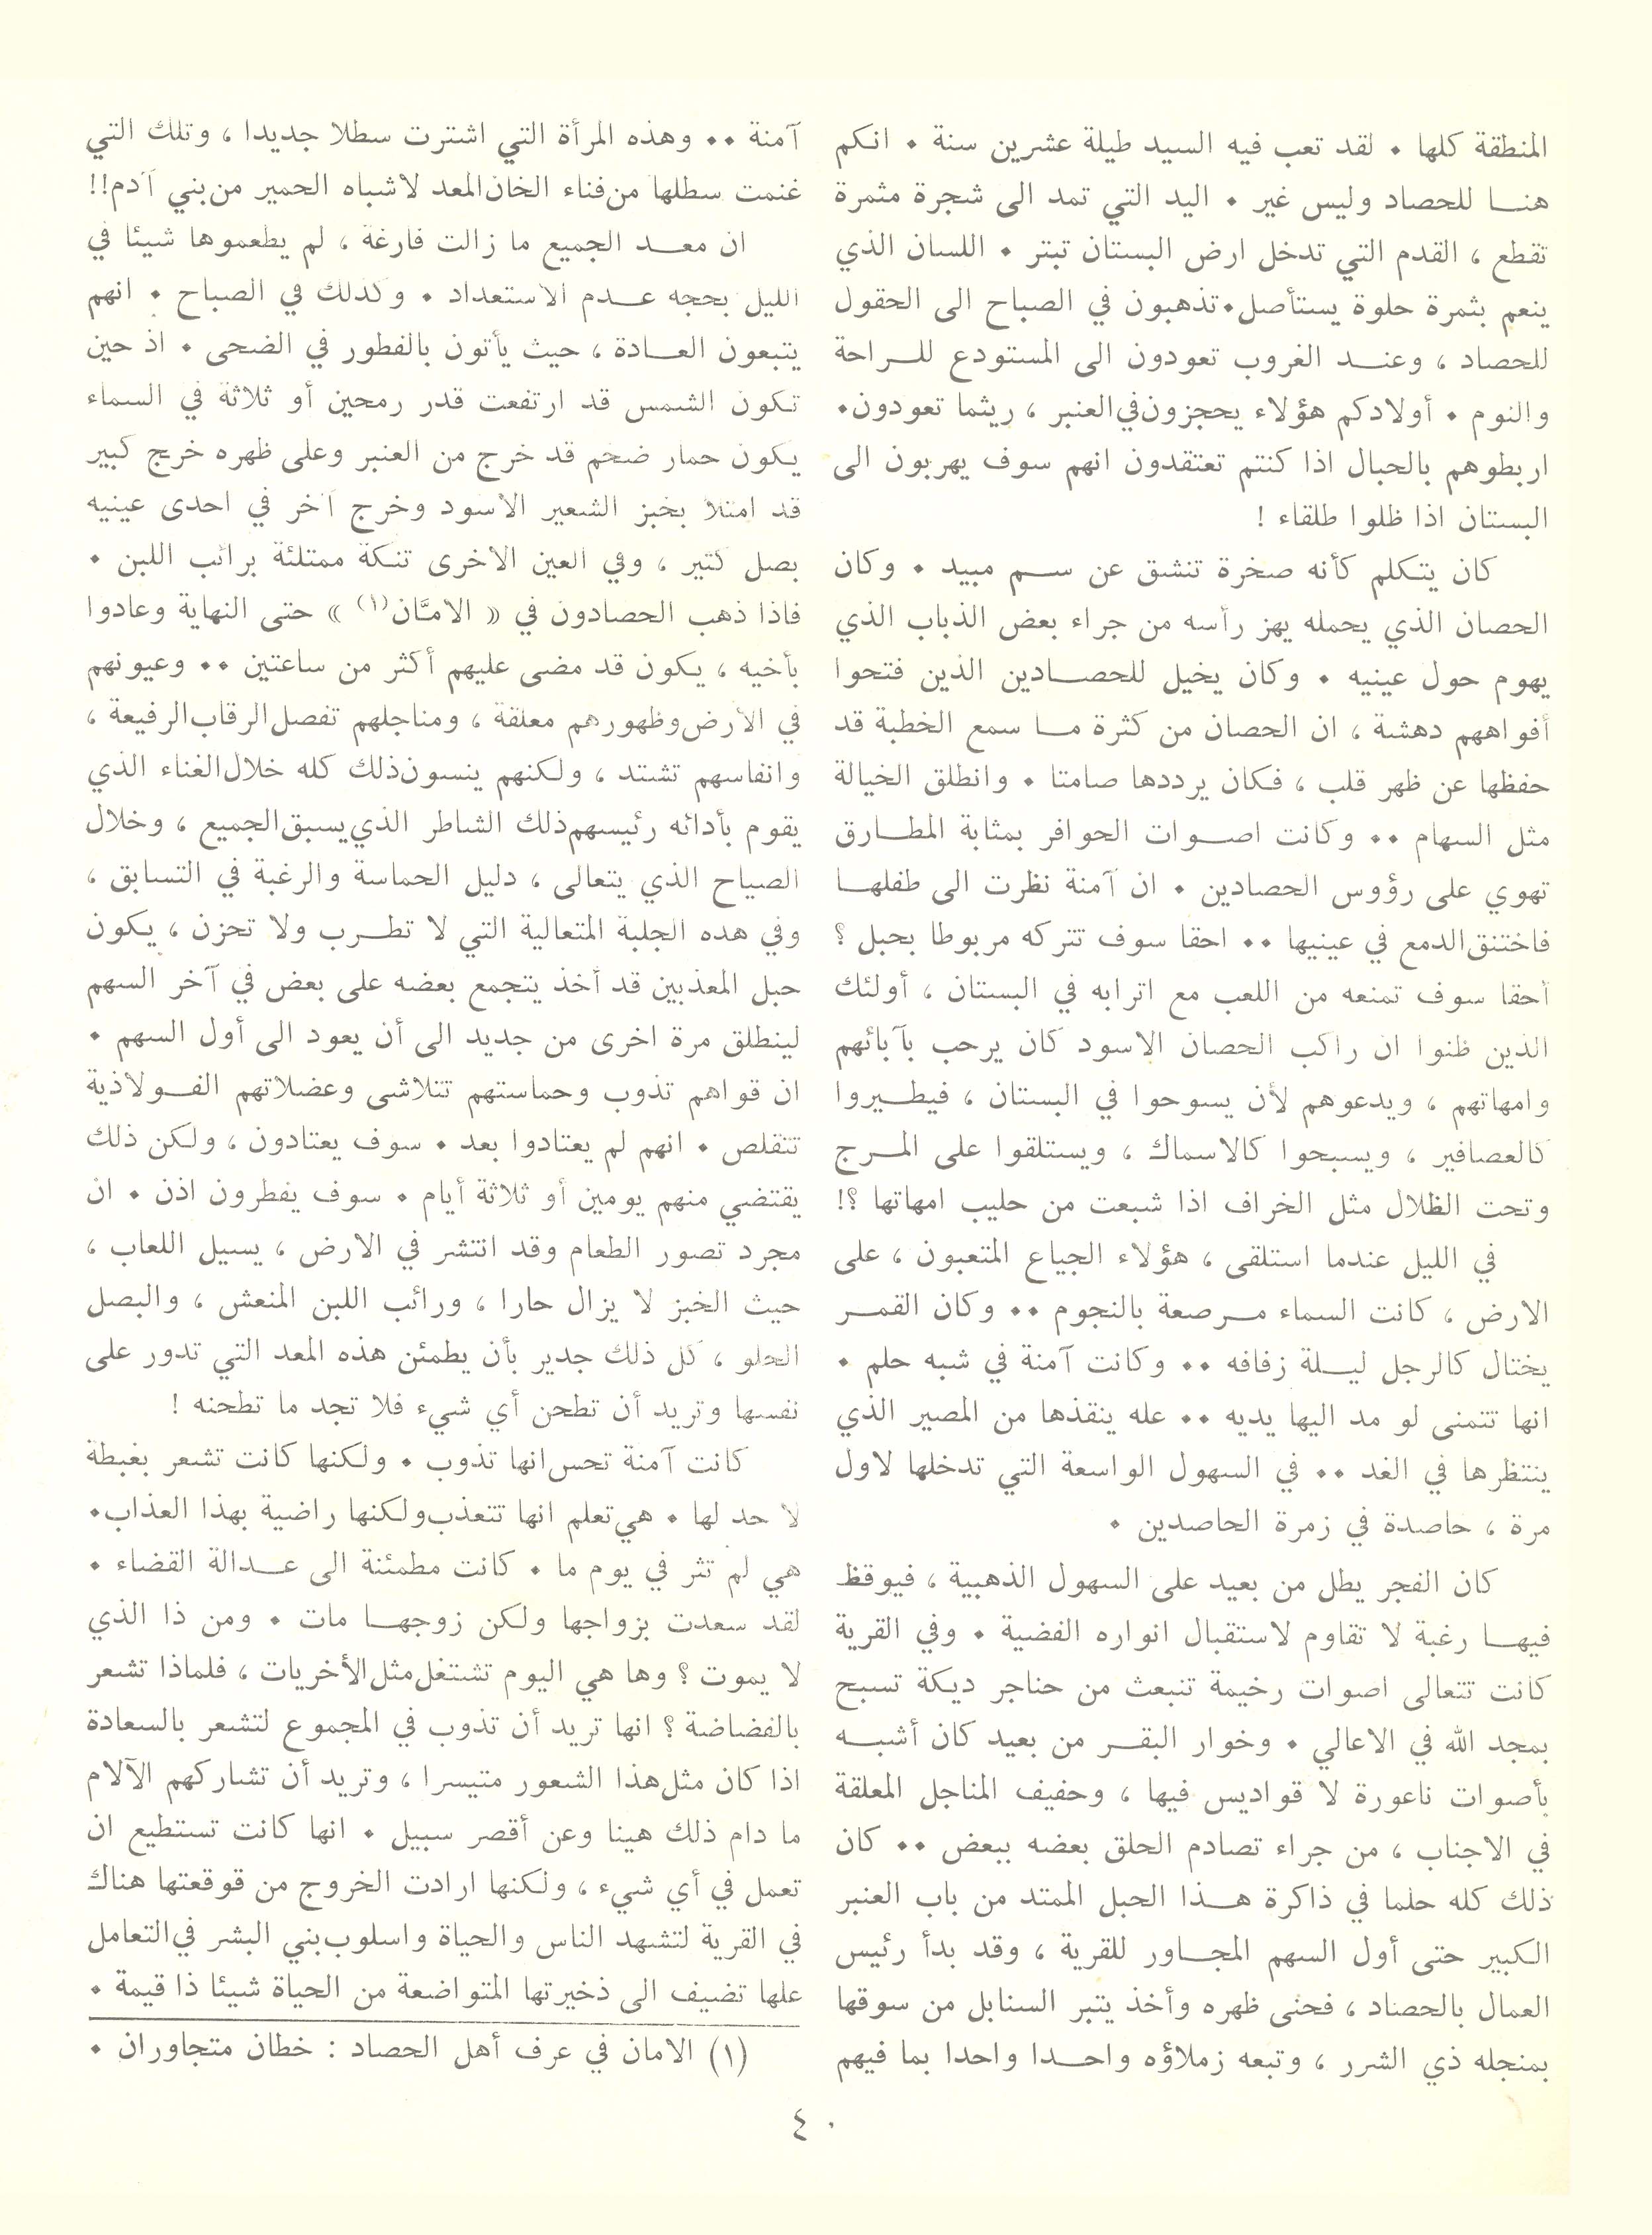 المنطقة كلها . لقد تعب فيه السيد طيلة عشرين سنة . انكم
هنا للحصاد وليس غير . اليد التي تمد الى شجرة مثمرة
تقطع ، القدم التي تدخل ارض البستان تبتر . اللسان الذي
ينعم بثمرة حلوة يستأصل . تذهبون في الصباح الى الحقول
للحصاد ، وعند الغروب تعودون الى المستودع للراحة
والنوم . أولادكم هؤلاء يحجزون في العنبر ، ريثما تعودون .
اربطوهم بالحبال اذا كنتم تعتقدون انهم سوف يهربون الى
البستان اذا ظلوا طلقاء !
كان يتكلم كأنه صخرة تنشق عن سم مبيد . وكان
الحصان الذي يحمله يهز رأسه من جراء بعض الذباب الذي
يهوم حول عينيه . وكان يخيل للحصادين الذين فتحوا
أفواههم دهشة ، ان الحصان من كثرة ما سمع الخطبة قد
حفظها عن ظهر قلب ، فكان يرددها صامتا . وانطلق الخيالة
مثل السهام .. وكانت اصوات الحوافر بمثابة المطارق
تهوي على رؤوس الحصادين . ان آمنة نظرت الى طفلها
فاختنق الدمع في عينيها .. احقا سوف تتركه مربوطا بحبل ؟
أحقا سوف تمنعه من اللعب مع اترابه في البستان ، أولئك
الذين ظنوا ان راكب الحصان الاسود كان يرحب بآبائهم
وامهاتهم ، ويدعوهم لأن يسوحوا في البستان ، فيطيروا
كالعصافير ، ويسبحوا كالاسماك ، ويستلقوا على المرج
وتحت الظلال مثل الخراف اذا شبعت من حليب امهاتها ؟!
في الليل عندما استلقى ، هؤلاء الجياع المتعبون ، على
الارض ، كانت السماء مرصعة بالنجوم .. وكان القمر
يختال كالرجل ليلة زفافه .. وكانت آمنة في شبه حلم .
انها تتمنى لو مد اليها يديه .. عله ينقذها من المصير الذي
ينتظرها في الغد .. في السهول الواسعة التي تدخلها لاول
مرة ، حاصدة في زمرة الحاصدين .
كان الفجر يطل من بعيد على السهول الذهبية ، فيوقظ
فيها رغبة لا تقاوم لاستقبال انواره الفضية . وفي القرية
كانت تتعالى اصوات رخيمة تنبعث من حناجر ديكة تسبح
بمجد الله في الاعالي . وخوار البقر من بعيد كان أشبه
بأصوات ناعورة لا قواديس فيها ، وحفيف المناجل المعلقة
في الاجناب ، من جراء تصادم الحلق بعضه ببعض .. كان
ذلك كله حلما في ذاكرة هذا الحبل الممتد من باب العنبر
الكبير حتى أول السهم المجاور للقرية ، وقد بدأ رئيس
العمال بالحصاد ، فحنى ظهره وأخذ يتبر السنابل من سوقها
بمنجله ذي الشرر ، وتبعه زملاؤه واحدا واحدا بما فيهم
آمنة .. وهذه المرأة التي اشترت سطلا جديدا ، وتلك التي
غنمت سطلها من فناء الخان المعد لاشباه الحمير من بني آدم !!
ان معد الجميع ما زالت فارغة ، لم يطعموها شيئا في
الليل بحجه عدم الاستعداد . وكذلك في الصباح . انهم
يتبعون العادة ، حيث يأتون بالفطور في الضحى . اذ حين
تكون الشمس قد ارتفعت قدر رمحين أو ثلاثة في السماء
يكون حمار ضخم قد خرج من العنبر وعلى ظهره خرج كبير
قد امتلأ بخبز الشعير الاسود وخرج آخر في احدى عينيه
بصل كثير ، وفي العين الاخرى تنكة ممتلئة برائب اللبن .
فاذا ذهب الحصادون في « الامَّان(١) » حتى النهاية وعادوا
بأخيه ، يكون قد مضى عليهم أكثر من ساعتين .. وعيونهم
في الأرض وظهورهم معلقة ، ومناجلهم تفصل الرقاب الرفيعة ،
وانفاسهم تشتد ، ولكنهم ينسون ذلك كله خلال الغناء الذي
يقوم بأدائه رئيسهم ذلك الشاطر الذي يسبق الجميع ، وخلال
الصياح الذي يتعالى ، دليل الحماسة والرغبة في التسابق ،
وفي هذه الجلبة المتعالية التي لا تطرب ولا تحزن ، يكون
حبل المعذبين قد أخذ يتجمع بعضه على بعض في آخر السهم
لينطلق مرة اخرى من جديد الى أن يعود الى أول السهم .
ان قواهم تذوب وحماستهم تتلاشى وعضلاتهم الفولاذية
تتقلص . انهم لم يعتادوا بعد . سوف يعتادون ، ولكن ذلك
يقتضي منهم يومين أو ثلاثة أيام . سوف يفطرون اذن . ان
مجرد تصور الطعام وقد انتشر في الارض ، يسيل اللعاب ،
حيث الخبز لا يزال حارا ، ورائب اللبن المنعش ، والبصل
الحلو ، كل ذلك جدير بأن يطمئن هذه المعد التي تدور على
نفسها وتريد أن تطحن أي شيء فلا تجد ما تطحنه !
كانت آمنة تحس انها تذوب . ولكنها كانت تشعر بغبطة
لا حد لها . هي تعلم انها تتعذب ولكنها راضية بهذا العذاب .
هي لم تثر في يوم ما . كانت مطمئنة الى عدالة القضاء .
لقد سعدت بزواجها ولكن زوجها مات . ومن ذا الذي
لا يموت ؟ وها هي اليوم تشتغل مثل الأخريات ، فلماذا تشعر
بالفضاضة ؟ انها تريد أن تذوب في المجموع لتشعر بالسعادة
اذا كان مثل هذا الشعور متيسرا ، وتريد أن تشاركهم الآلام
ما دام ذلك هينا وعن أقصر سبيل . انها كانت تستطيع ان
تعمل في أي شيء ، ولكنها ارادت الخروج من قوقعتها هناك
في القرية لتشهد الناس والحياة واسلوب بني البشر في التعامل
علها تضيف الى ذخيرتها المتواضعة من الحياة شيئا ذا قيمة .
(١) الامان في عرف أهل الحصاد : خطان متجاوران .
٤٠